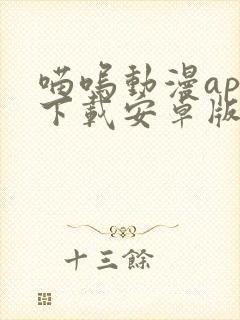 喵嗚動漫ap
下載安卓版
十三餘